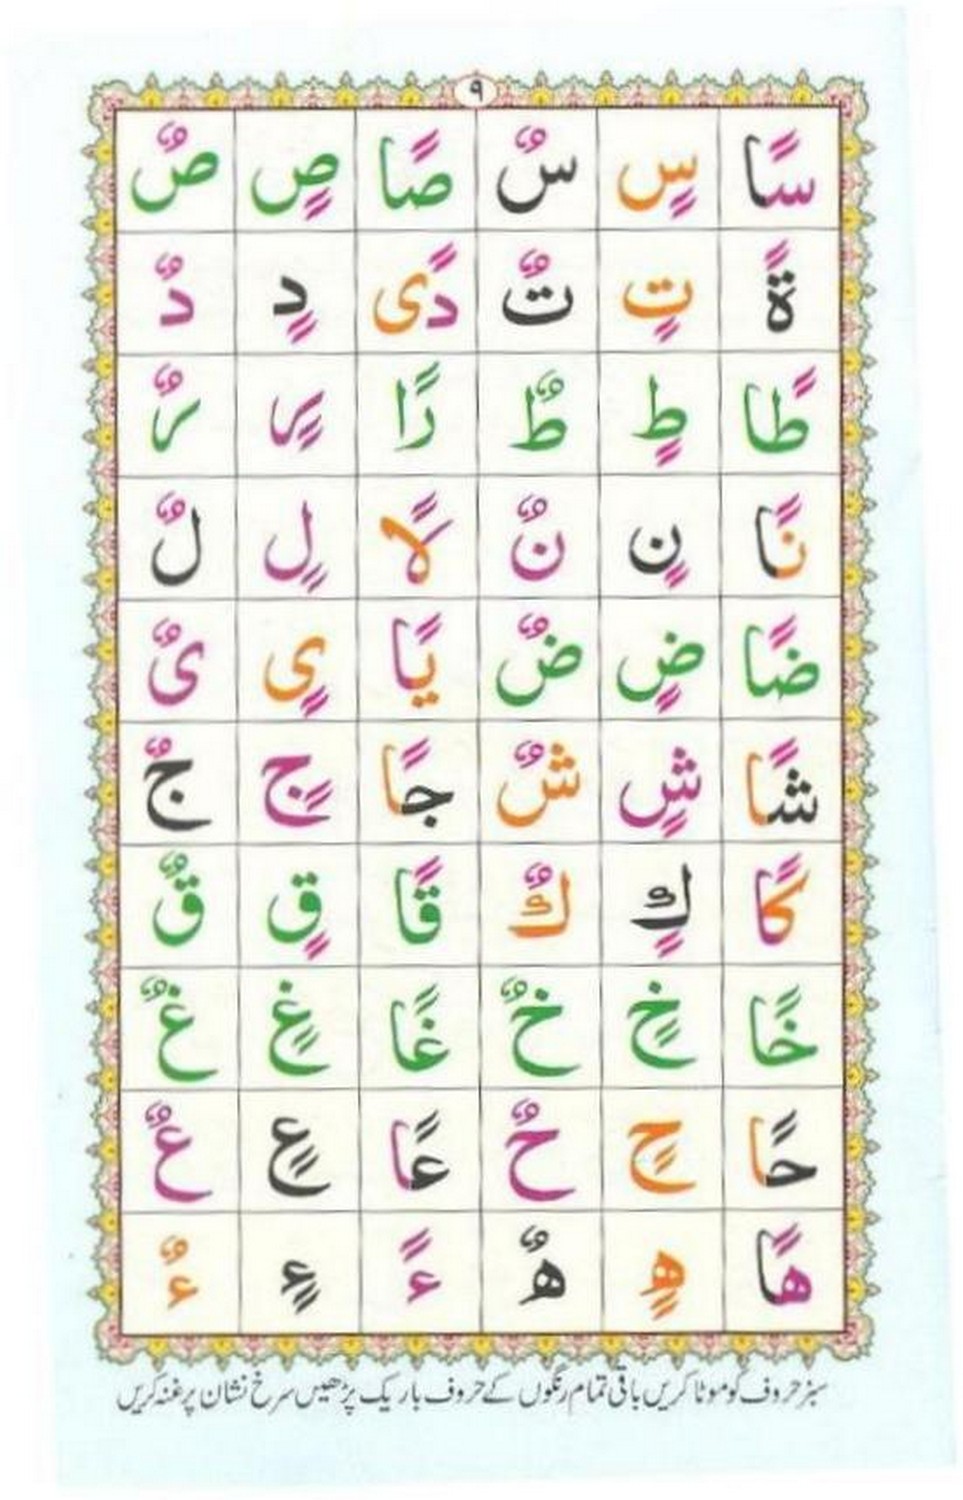 ٩
سًا سٍ سٌ صًا صٍ صٌ
ةً تٍ تٌ دًى دٍ دٌ
طًا طٍ طٌ رًا رٍ رٌ
نًا نٍ نٌ لًا لٍ لٌ
ضًا ضٍ ضٌ يًا ىٍ ىٌ
شًا شٍ شٌ جًا جٍ جٌ
كًا كٍ كٌ قًا قٍ قٌ
خًا خٍ خٌ غًا غٍ غٌ
حًا حٍ حٌ عًا عٍ عٌ
هًا هٍ هٌ ءً ءٍ ءٌ
سبز حروف کو موٹا کریں باقی تمام رنگوں کے حروف باریک پڑھیں سرخ نشان پر غنہ کریں